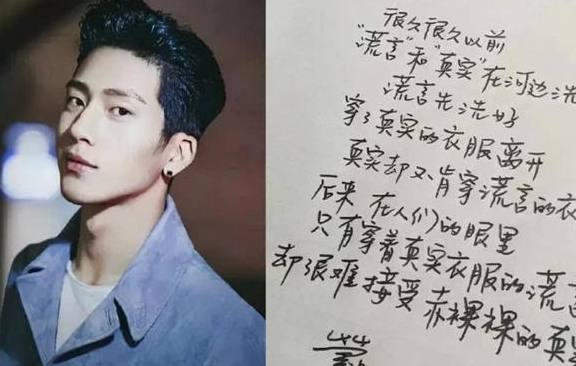 很久很久以前
"谎言"和"真实"在河边洗
谎言先洗好
穿了真实的衣服离开
真实却不肯穿谎言的衣
后来 在人们的眼里
只有穿着真实衣服的谎言
却很难接受赤裸裸的真实